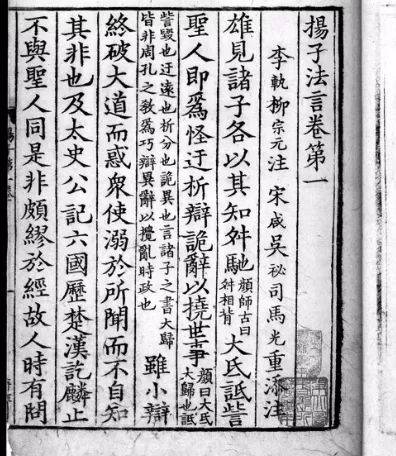 揚子法言卷第一
李軌柳宗元注 宋咸吳祕司馬光重添注
雄見諸子各以其知舛馳
顏師古曰
舛相背
大氐詆訾
聖人即爲怪迂析辯詭辭以撓世事
顏曰大氐
大歸也詆
訾毀也迂遠也析分也詭異也言諸子之書大歸
皆非周孔之敎爲巧辯異辭以攪亂時政也
雖小辯
終破大道而惑衆使溺於所聞而不自知
其非也及太史公記六國歷楚漢訖麟止
不與聖人同是非頗繆於經故人時有問